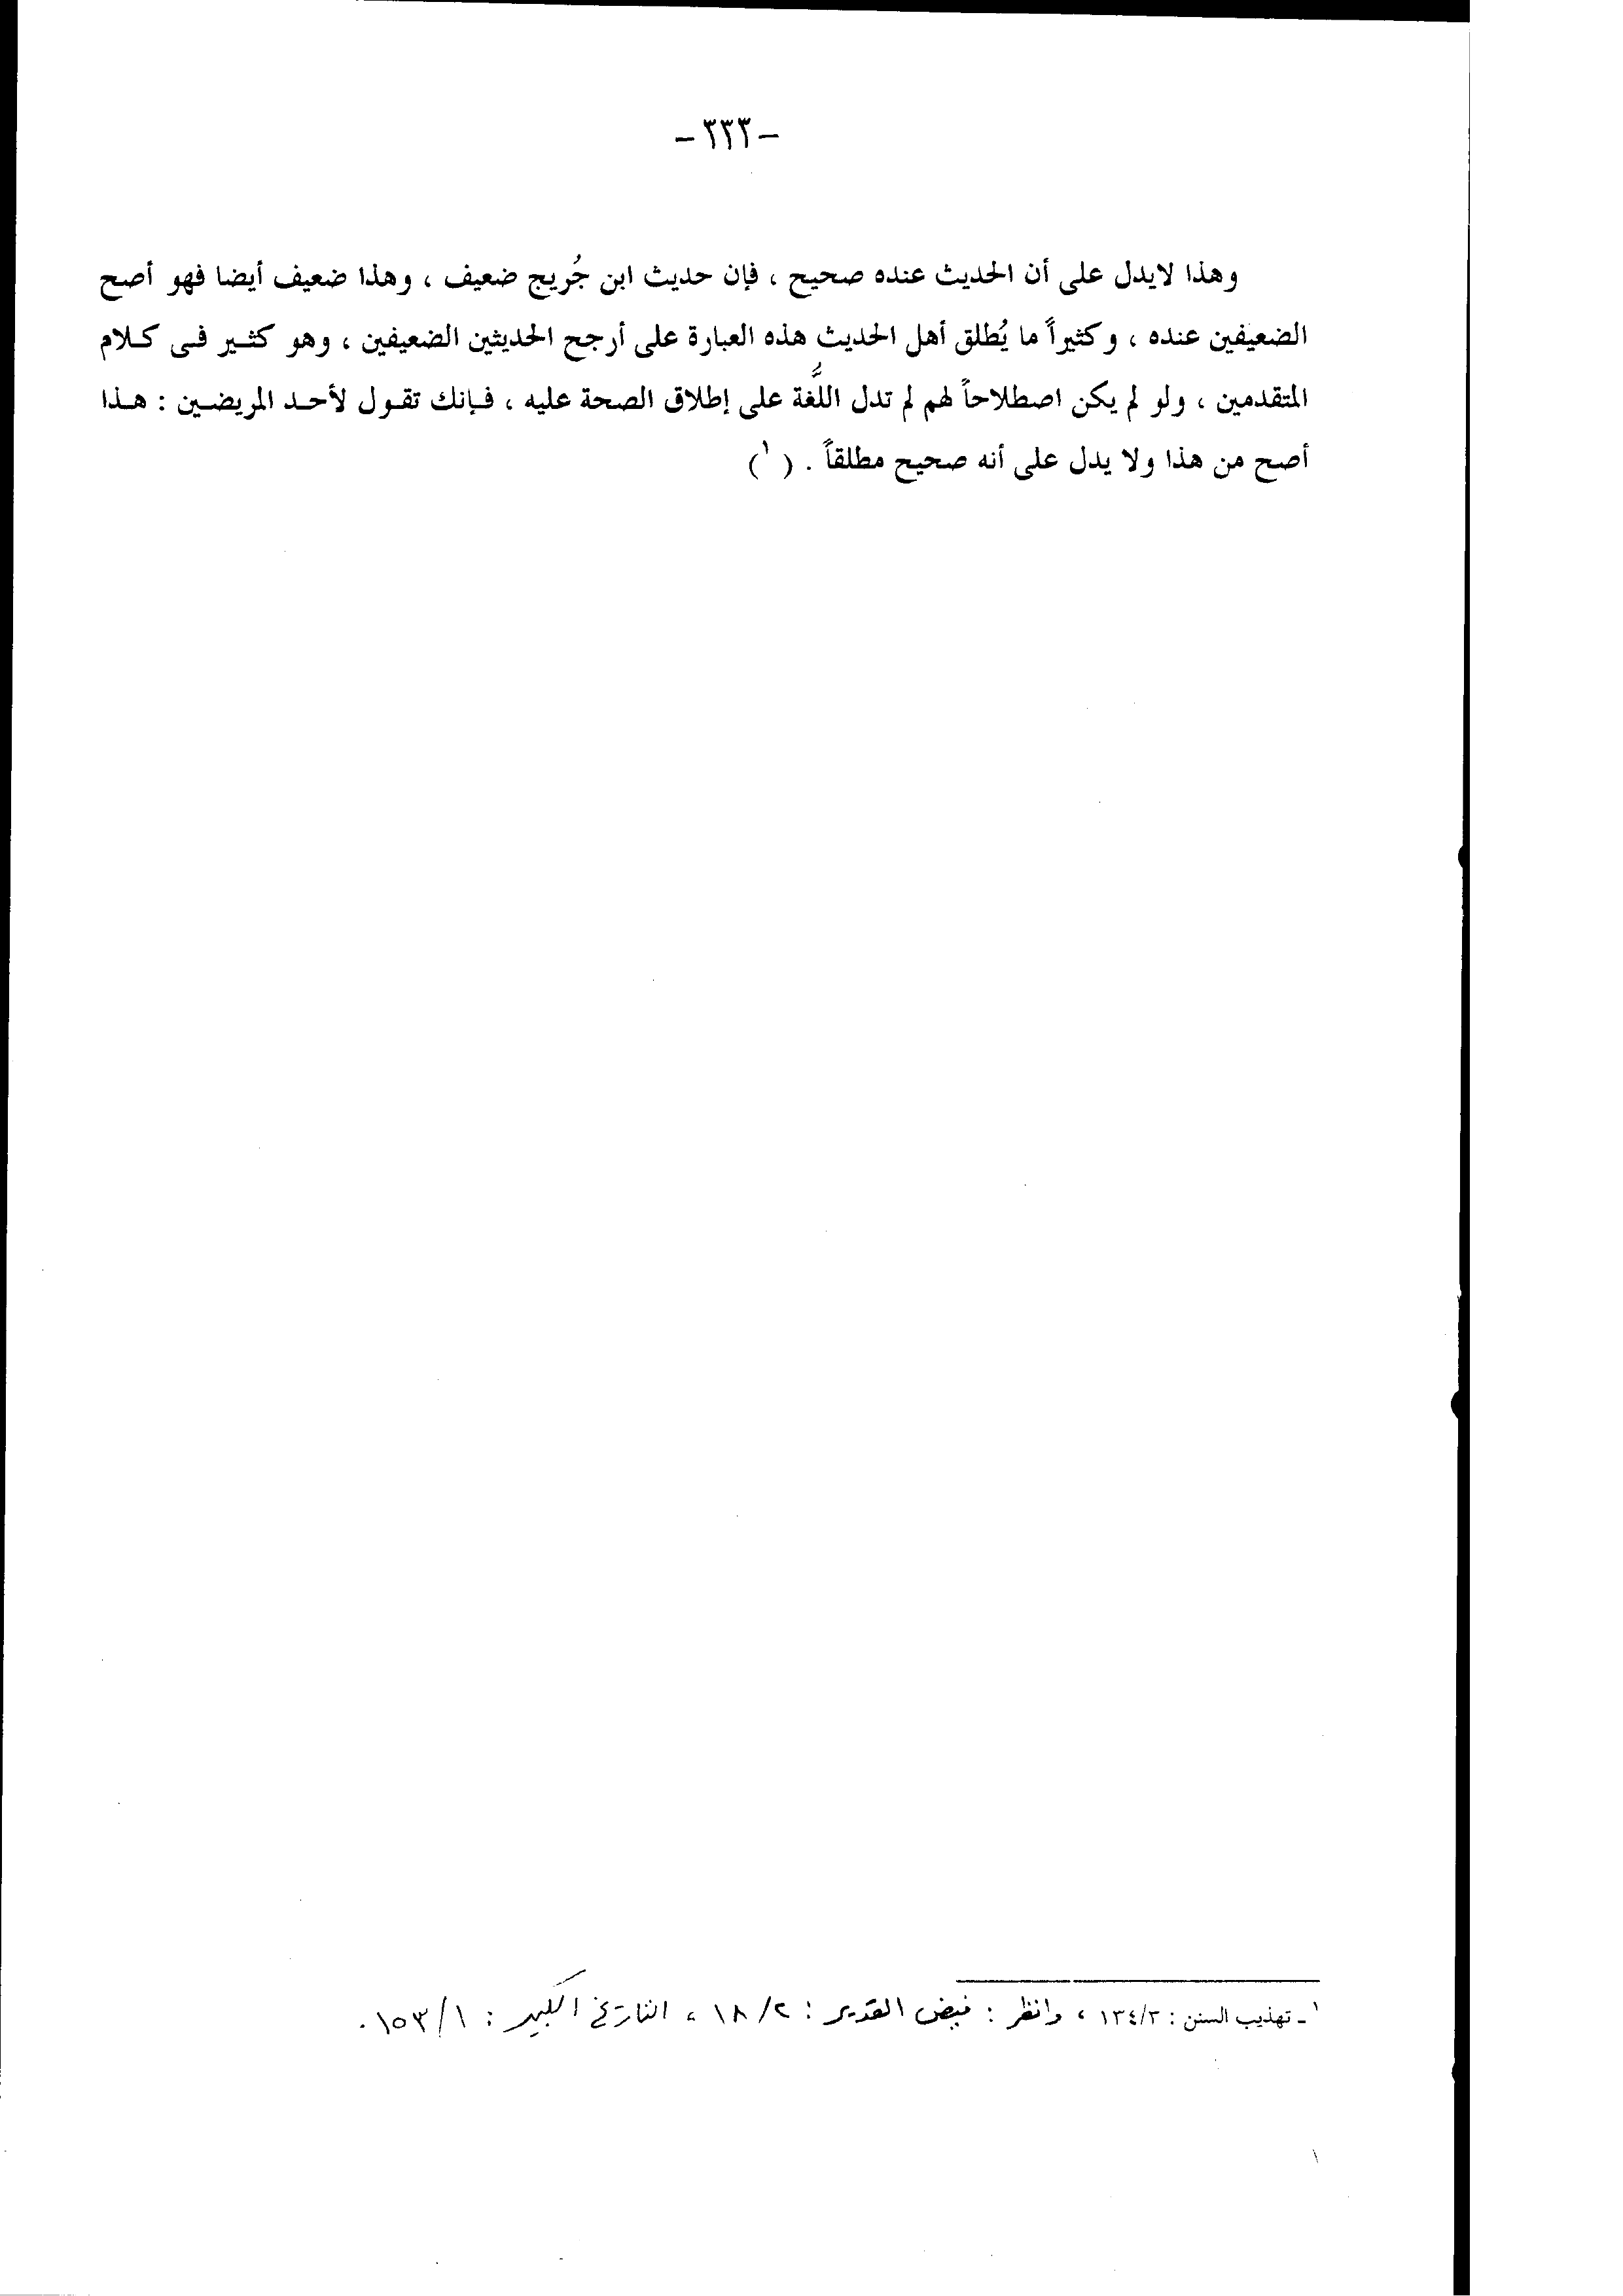 -٣٣٣-
وهذا لايدل على أن الحديث عنده صحيح ، فإن حديث ابن جُريج ضعيف ، وهذا ضعيف أيضا فهو أصح
الضعيفين عنده ، وكثيراً ما يُطلق أهل الحديث هذه العبارة على أرجح الحديثين الضعيفين ، وهو كثير فى كلام
المتقدمين ، ولو لم يكن اصطلاحاً لهم لم تدل اللُّغة على إطلاق الصحة عليه ، فإنك تقول لأحد المريضين : هذا
أصح من هذا ولا يدل على أنه صحيح مطلقاً . (١)
١ـ تهذيب السنن : ١٣٤/٣ ، وانظر : فيض القدير : ١٨/٢ ، التاريخ الكبير : ١٥٣/١ .
١